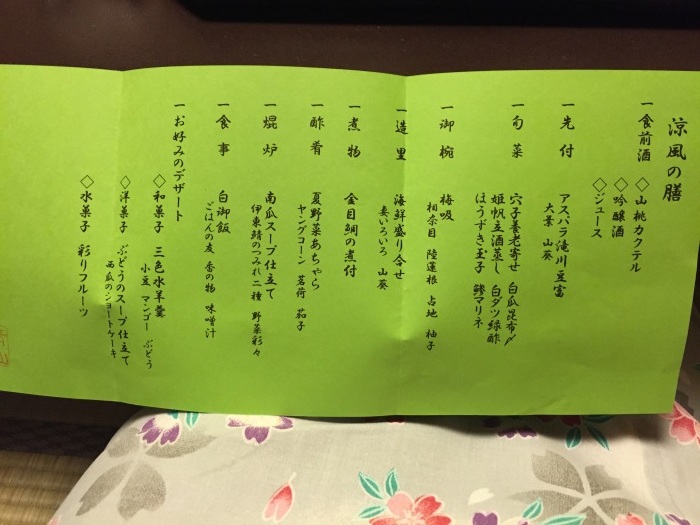 涼風の膳
一 食前酒
◇山桃カクテル
◇吟醸酒
◇ジュース
一 先付
アスパラ滝川豆富
大葉 山葵
一 旬菜
穴子養老寄せ 白瓜昆布〆
姫帆立酒蒸し 白ダツ緑酢
ほうずき玉子 鯵マリネ
一 御椀
梅吸
相奈目 陸蓮根 占地 柚子
一 造里
海鮮盛り合せ
妻いろいろ 山葵
一 煮物
金目鯛の煮付
一 酢肴
夏野菜あちゃら
ヤングコーン 茗荷 茄子
一 焜炉
南瓜スープ仕立て
伊東鯖のつみれ二種 野菜彩々
一 食事
白御飯
ごはんの友 香の物 味噌汁
一 お好みのデザート
◇和菓子 三色水羊羹
小豆 マンゴー ぶどう
◇洋菓子 ぶどうのスープ仕立て
西瓜のショートケーキ
◇水菓子 彩りフルーツ